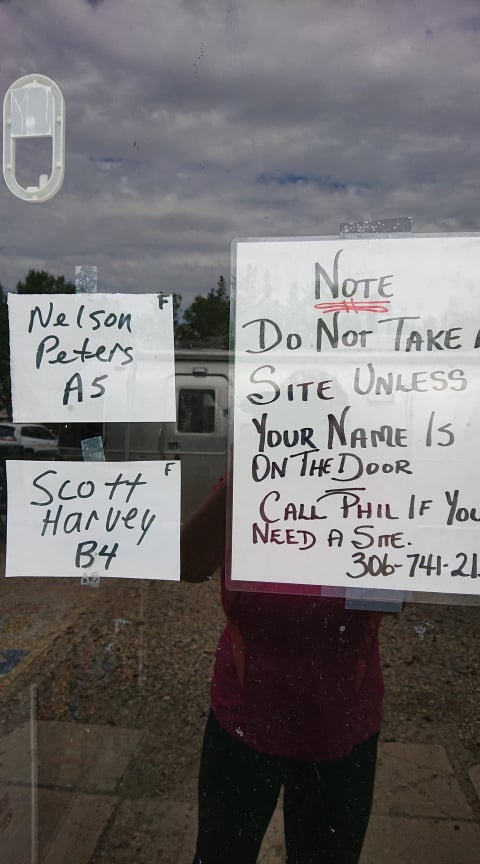 F
Nelson
Peters
A5
F
Scott
Harvey
B4
NOTE
DO NOT TAKE
SITE UNLESS
YOUR NAME IS
ON THE DOOR
CALL PHIL IF YOU
NEED A SITE.
306-741-21